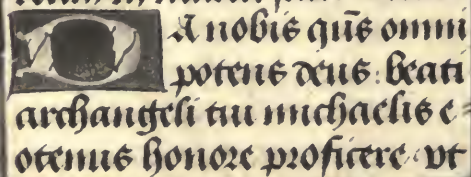 DA nobis qūs omni
potens deus: beati
archangeli tui michaelis e-
otenus honore proficere: vt